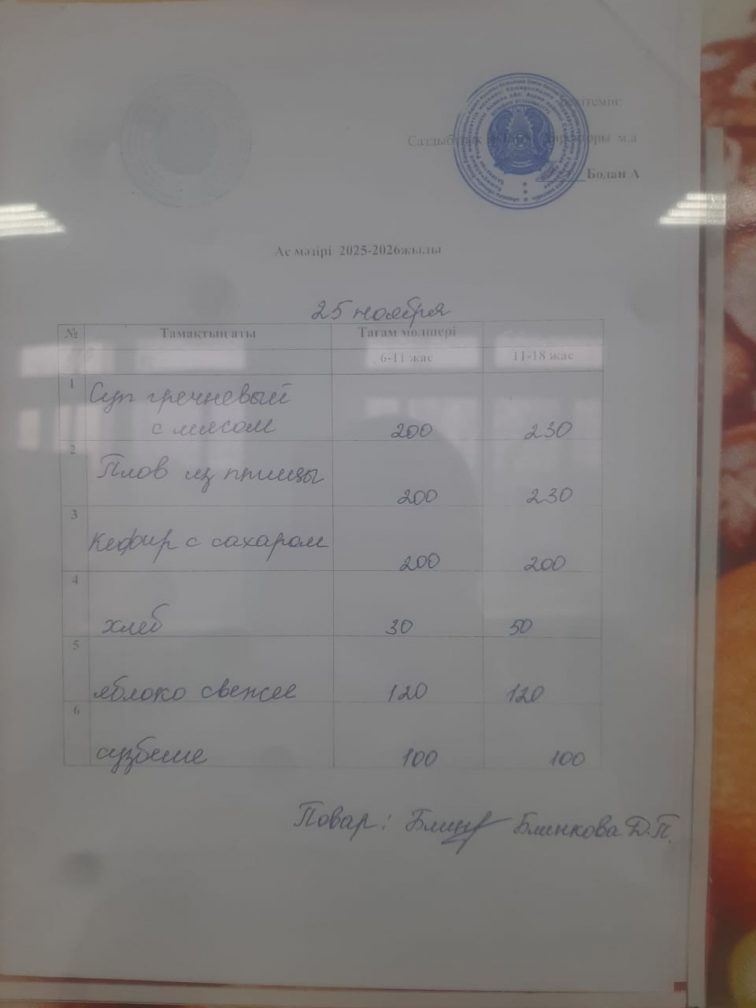 Бекітемін:
м.а
Бодан А
Ас мәзірі 2025-2026жылы
25 ноября
№ Тамақтың аты Тағам мөлшері
6-11 жас 11-18 жас
1 Суп гречневый
с мясом 200 230
2 Плов из птицы 200 230
3 Кефир с сахаром 200 200
4 хлеб 30 50
5 яблоко свежее 120 120
6 сузбеше 100 100
Повар: Блинкова Д.П.